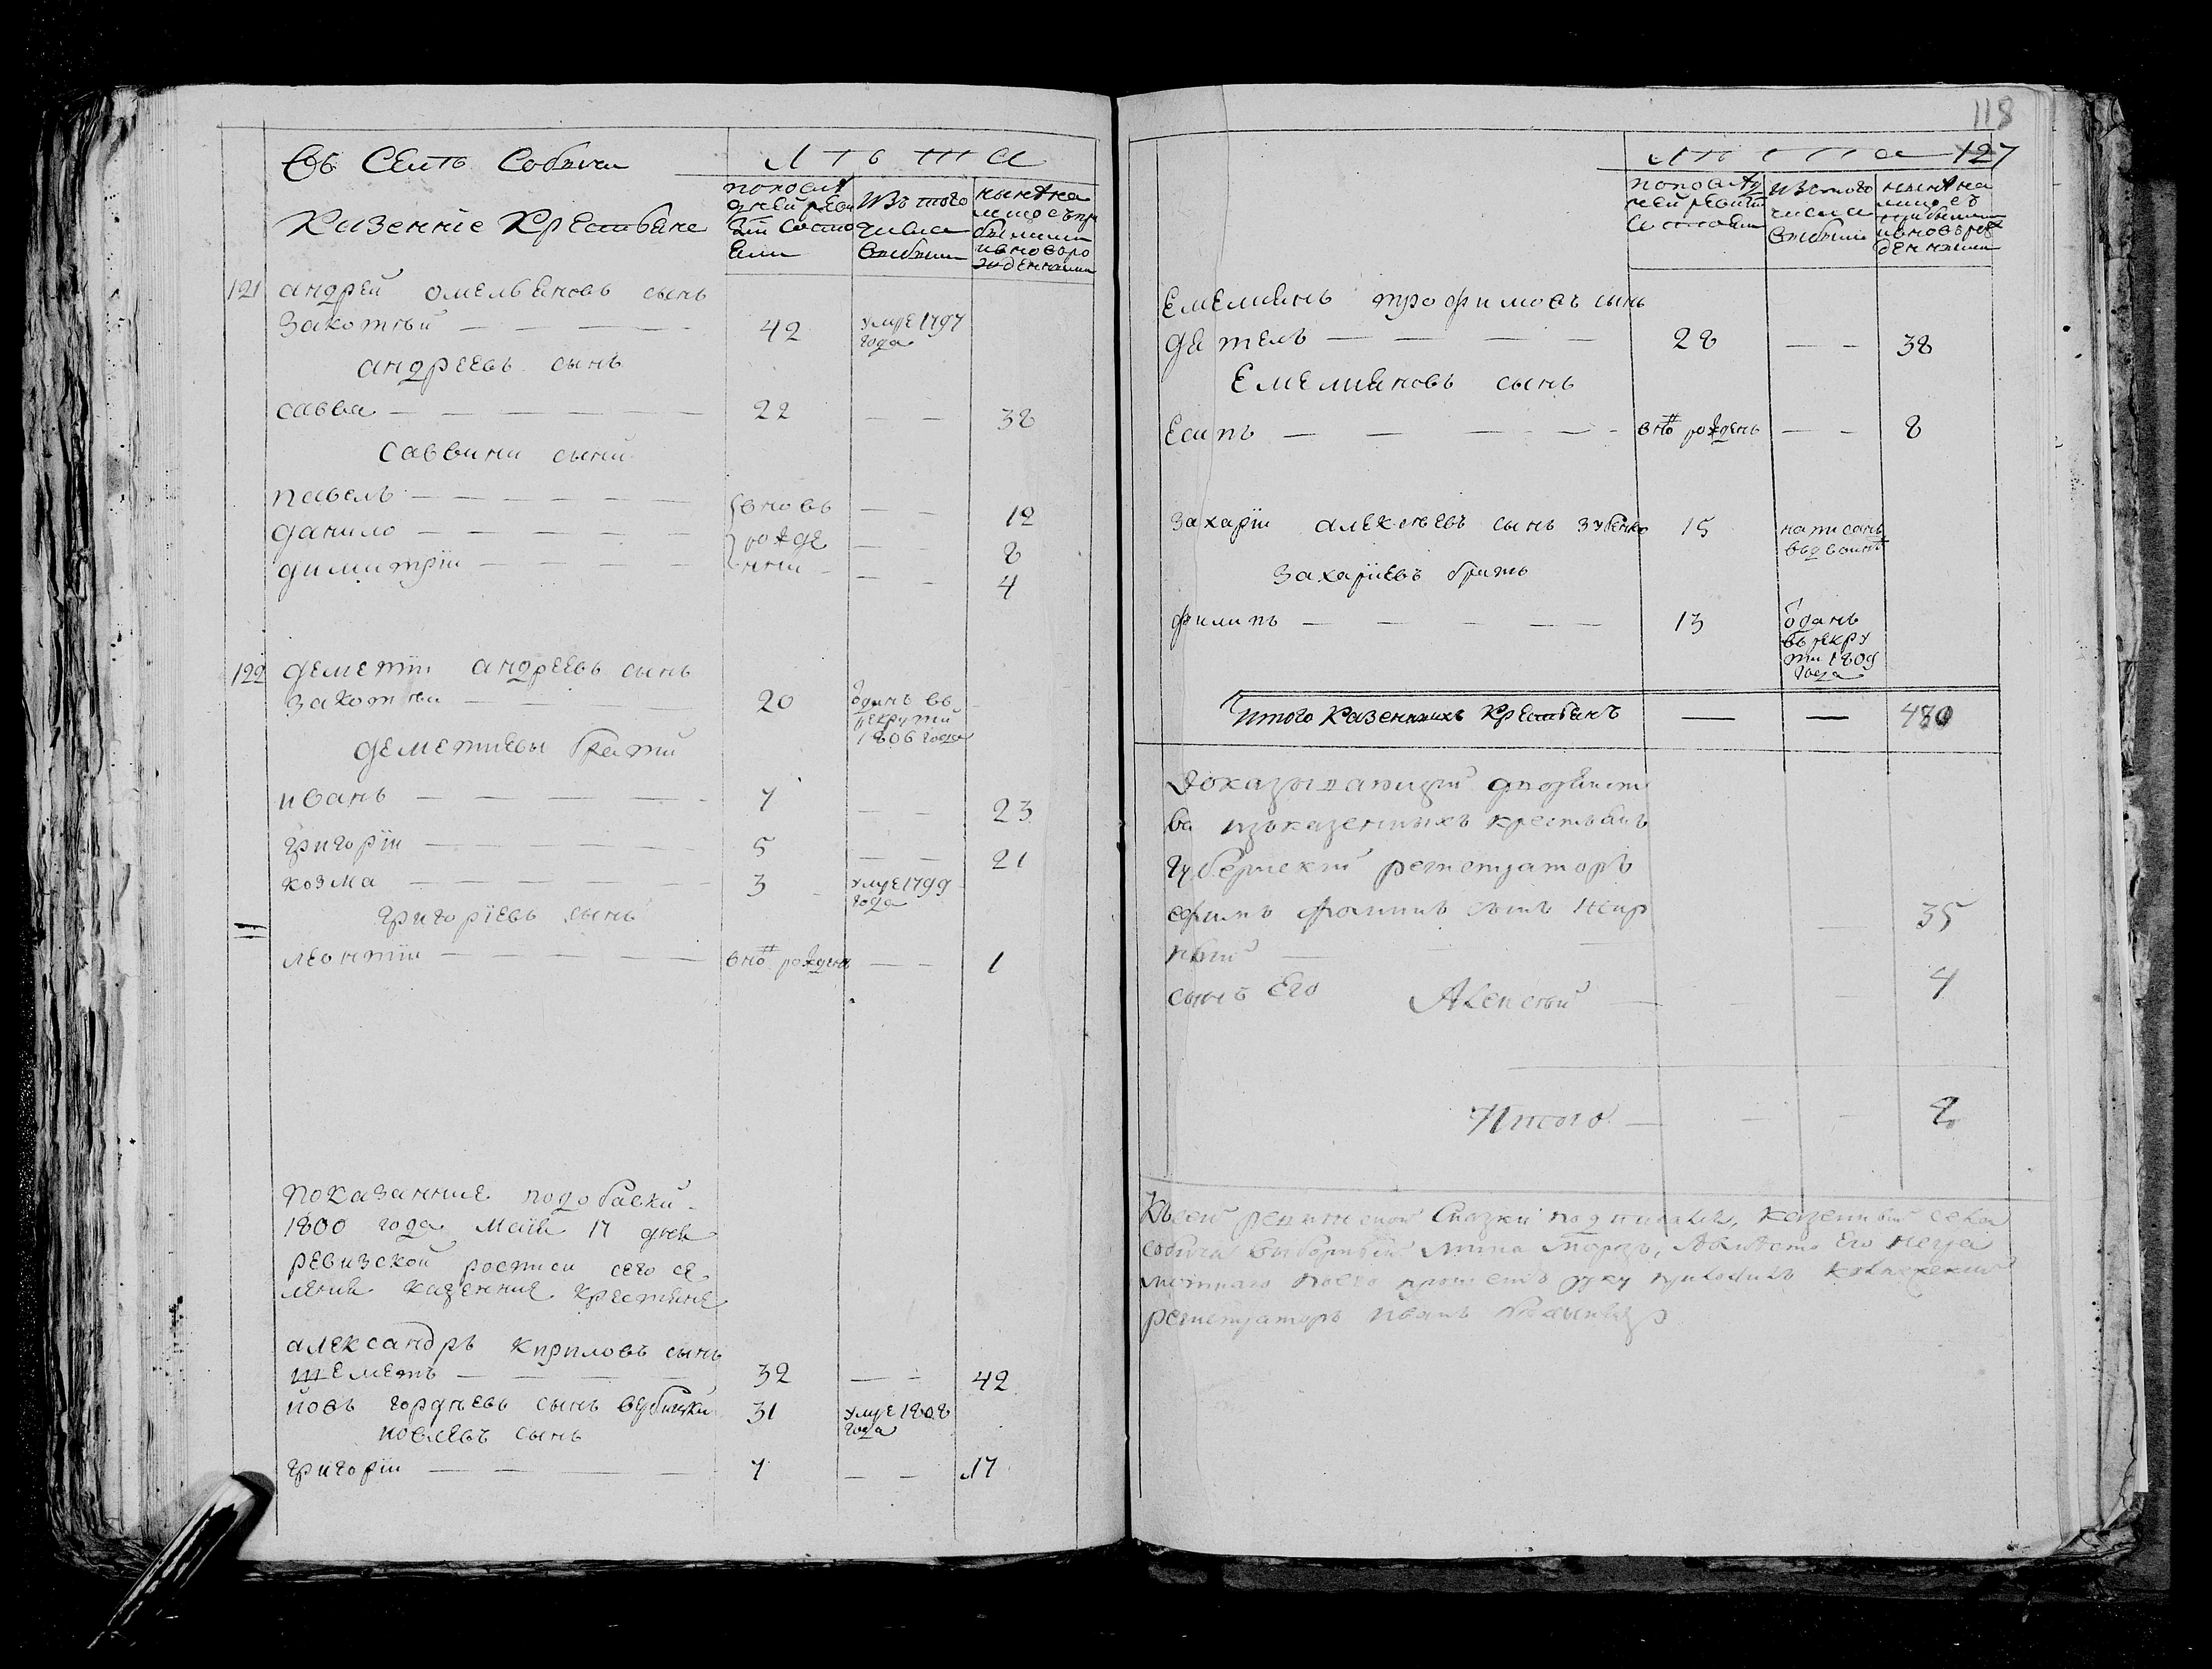 Въ Селѣ Собичи
Казенніе Крестьяне
Лѣта
по послѣ
дней реви
зіи состо
яли
Изъ того
числа
выбыли
нынѣ на
лицо съ при
былими
и вново ро
жденними
121 андрей омельяновъ сынъ
Закотній 42 умре 1797
года
андреевъ сынъ
савва 22 38
саввини сыни
павелъ вновь 12
данило рожде 8
димитрій нни 4
122 дементій андреевъ сынъ
Закотній 20 отданъ въ
рекруты
1806 года
дементиевы братя
иванъ 7 23
григорій 5 21
козма 3 умре 1799
года
григоріевъ сынъ
леонтій вно рожденъ 1
показанние по добавки
1800 года маія 17 дня
ревизской росписи сего се
ления казенние крестяне
александръ кириловъ сынъ
шеметъ 32 42
иовъ гордѣевъ сынъ 31 умре 1808
года
иовлевъ сынъ
григорій 7 17
118
Лѣта 127
по послѣд
ней ревизіи
состояли
Изъ того
числа
выбыли
нынѣ на
лицо съ
прибылими
и вновь рож
денними
Емелиянъ трофимовъ сынъ
дятелъ 28 38
Емелияновъ сынъ
Есипъ вно рожденъ 8
Захарій алексѣевъ сынъ зубенко 15 написанъ
въ двойнѣ
Захаріевъ братъ
филипъ 13 отданъ
въ рекру
ти 1809
года
Итого Казенныхъ Крестьянъ 480
ва изъ казенныхъ крестьянъ
Губернский регистраторъ
сынъ 35
сынъ Его Алексѣй 4
Итого 2
Къ сей ревижской Сказки подписался, казенный села
Собича выборный Мина Морозъ, а вмѣсто Его негра
мотнаго по его прошению руку приложилъ колежский
регистраторъ Иванъ